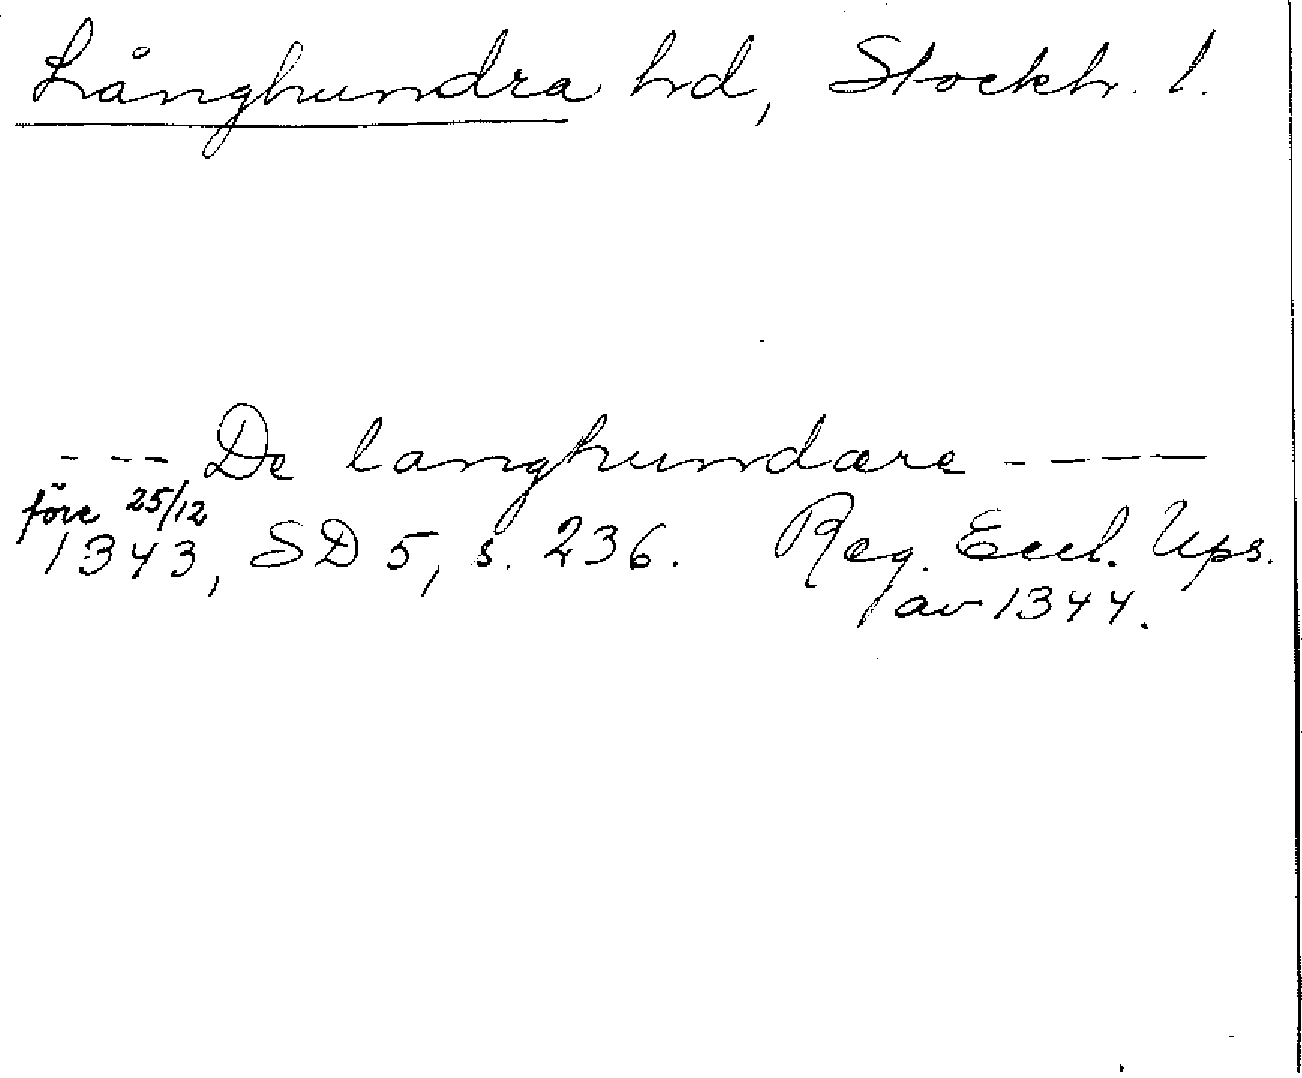 Långhundra hd, Stockh. l.
--- De langhundare ----
före 25/12
1343, SD 5, s. 236. Reg. Eccl. Ups.
av 1344.